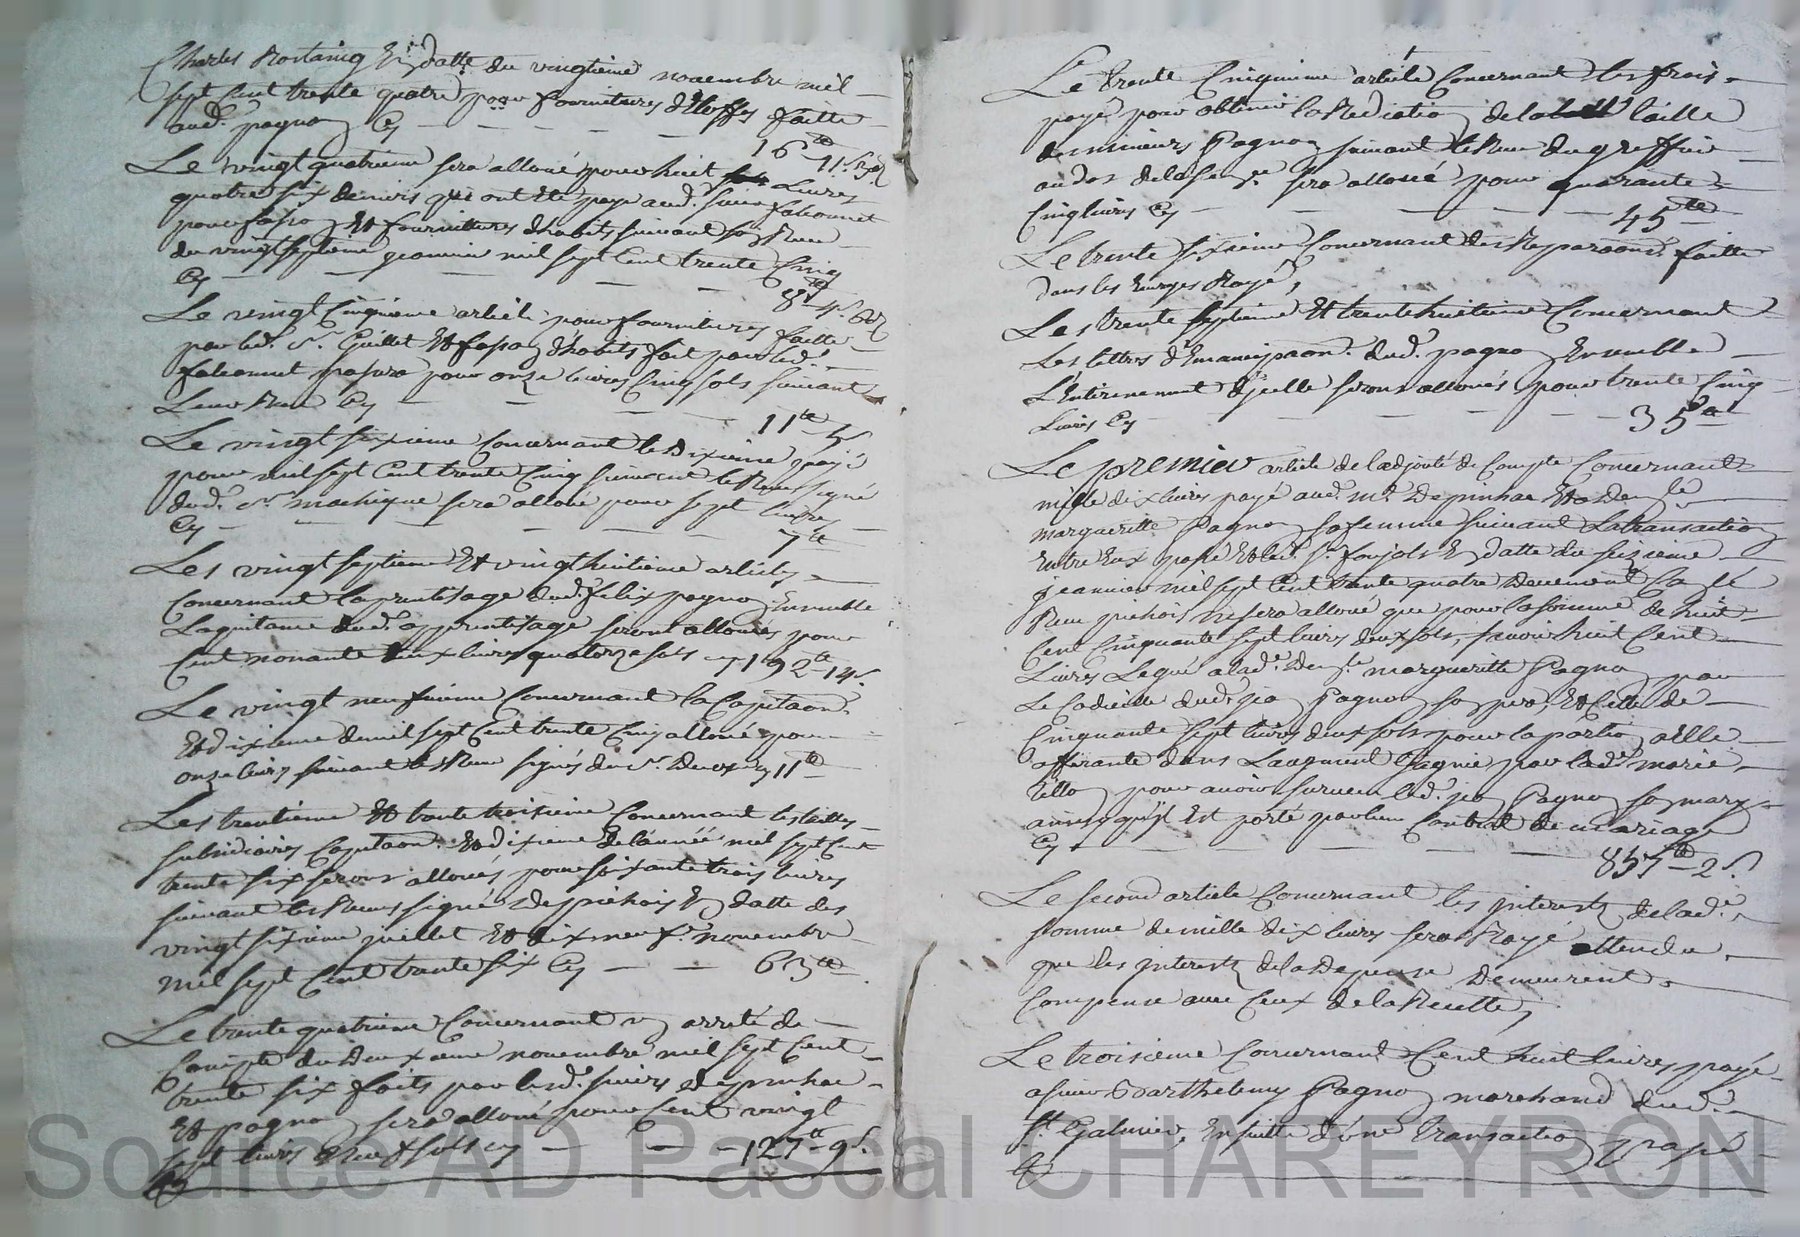 Charles Rostaing En datte du vingtieme novembre mil
sept Cent trente quatre pour fournitures d'Etoffes faitte
aud. pagnon Cy
16tt 11s 3d
Le vingt quatrieme sera alloué pour huit Livres
quatre six deniers qui ont Eté payé aud. sieur falconnet
pour fasson Et fournittures d'habits suivant son Reçu
du vingt septieme jeanvier mil sept Cent trente Cinq
Cy 8tt 4s 6d
Le vingt Cinquieme article pour fournitures faitte
par led. Sr. Guillet Et fasson d'habits fait par led.
falconnet passera pour onze livres Cinq sols suivant
Leur Reçu Cy
11tt 5s
Le vingt sixieme Concernant le Dixieme payé
pour mil sept Cent trente Cinq suivant le Reçu signé
dud. Sr. sera alloué pour sept livres
Cy 7tt
Les vingt septieme Et vingt huitieme articles
Concernant l'aprentisage dud. felix pagnon Ensemble
La quitance dud. apprentisage seront alloués pour
Cent nonante deux livres quatorze sols Cy 192tt 14s
Le vingt neufvieme Concernant la Capitaon.
Et dixieme de mil sept Cent trente Cinq alloué pour
onze livres suivant les Reçu signés du Sr. Cy 11tt
Les trentieme Et trente troisieme Concernant les tailles
subsidiaires Capitaon. Et dixieme de l'année mil sept Cent
trente six seront alloués pour soixante trois livres
suivant les Reçus signé Despichois En datte des
vingt sixieme juillet Et dix neuf e. novembre
mil sept Cent trente six Cy 63tt
Le trente quatrieme Concernant un arreté de
Compte du Deuxieme novembre mil sept Cent
trente six faits par lesd. sieurs depinhac
Et pagnon sera alloué pour Cent vingt
sept livres neuf sols cy 127tt 9s
Le trente Cinquieme article Concernant les frais
payé pour obtenir la Rediction de la taille
des mineurs Pagnon suivant le Reçu du greffier
au dos de la sera alloué pour quarante
Cinq livres Cy 45tt
Le trente sixieme Concernant des Reparaons. faitte
dans les Rayé
Les trente septieme Et trente huitieme Concernant
Les lettres d'Emancipaon. dud. pagnon Ensemble
L'Enterinement d'jcelle seront alloués pour trente Cinq
Livres Cy 35tt
Le premier article de l'adjouté de Compte Concernant
mille dix livres payé aud. mr. Depinhac Et a Demlle
margueritte Pagnon sa femme suivant La transaction
Entre Eux passé Et led. Sr. foujols En datte du sezieme
jeanvier mil sept Cent trente quatre
Reçu pichois ne sera alloué que pour la somme de huit
Cent Cinquante sept livres deux sols, savoir huit Cent
Livres Legué a lad. Demlle. margueritte Pagnon par
Le Codicille dud. jean Pagnon son pere, Et Celle de
Cinquante sept livres deux sols pour la portion a Elle
afferante dans L'augment Gagnié par lad. marie
pour avoir survecu led. jean Pagnon son mary
ainsy qu'il Est porté par leur Contrat de mariage
Cy 857tt 2s
Le second article Concernant les jnterests de lad.
somme de mille dix livres sera Rayé attendu
que les jnterests de la Depense Demeurent
Compensé avec Ceux de la Recette
Le troisieme Concernant Cent huit livres payé
a sieur Barthelemy Pagnon marchand dud.
St. Galmier, En suitte d'une transaction passé
Source AD Pascal CHAREYRON